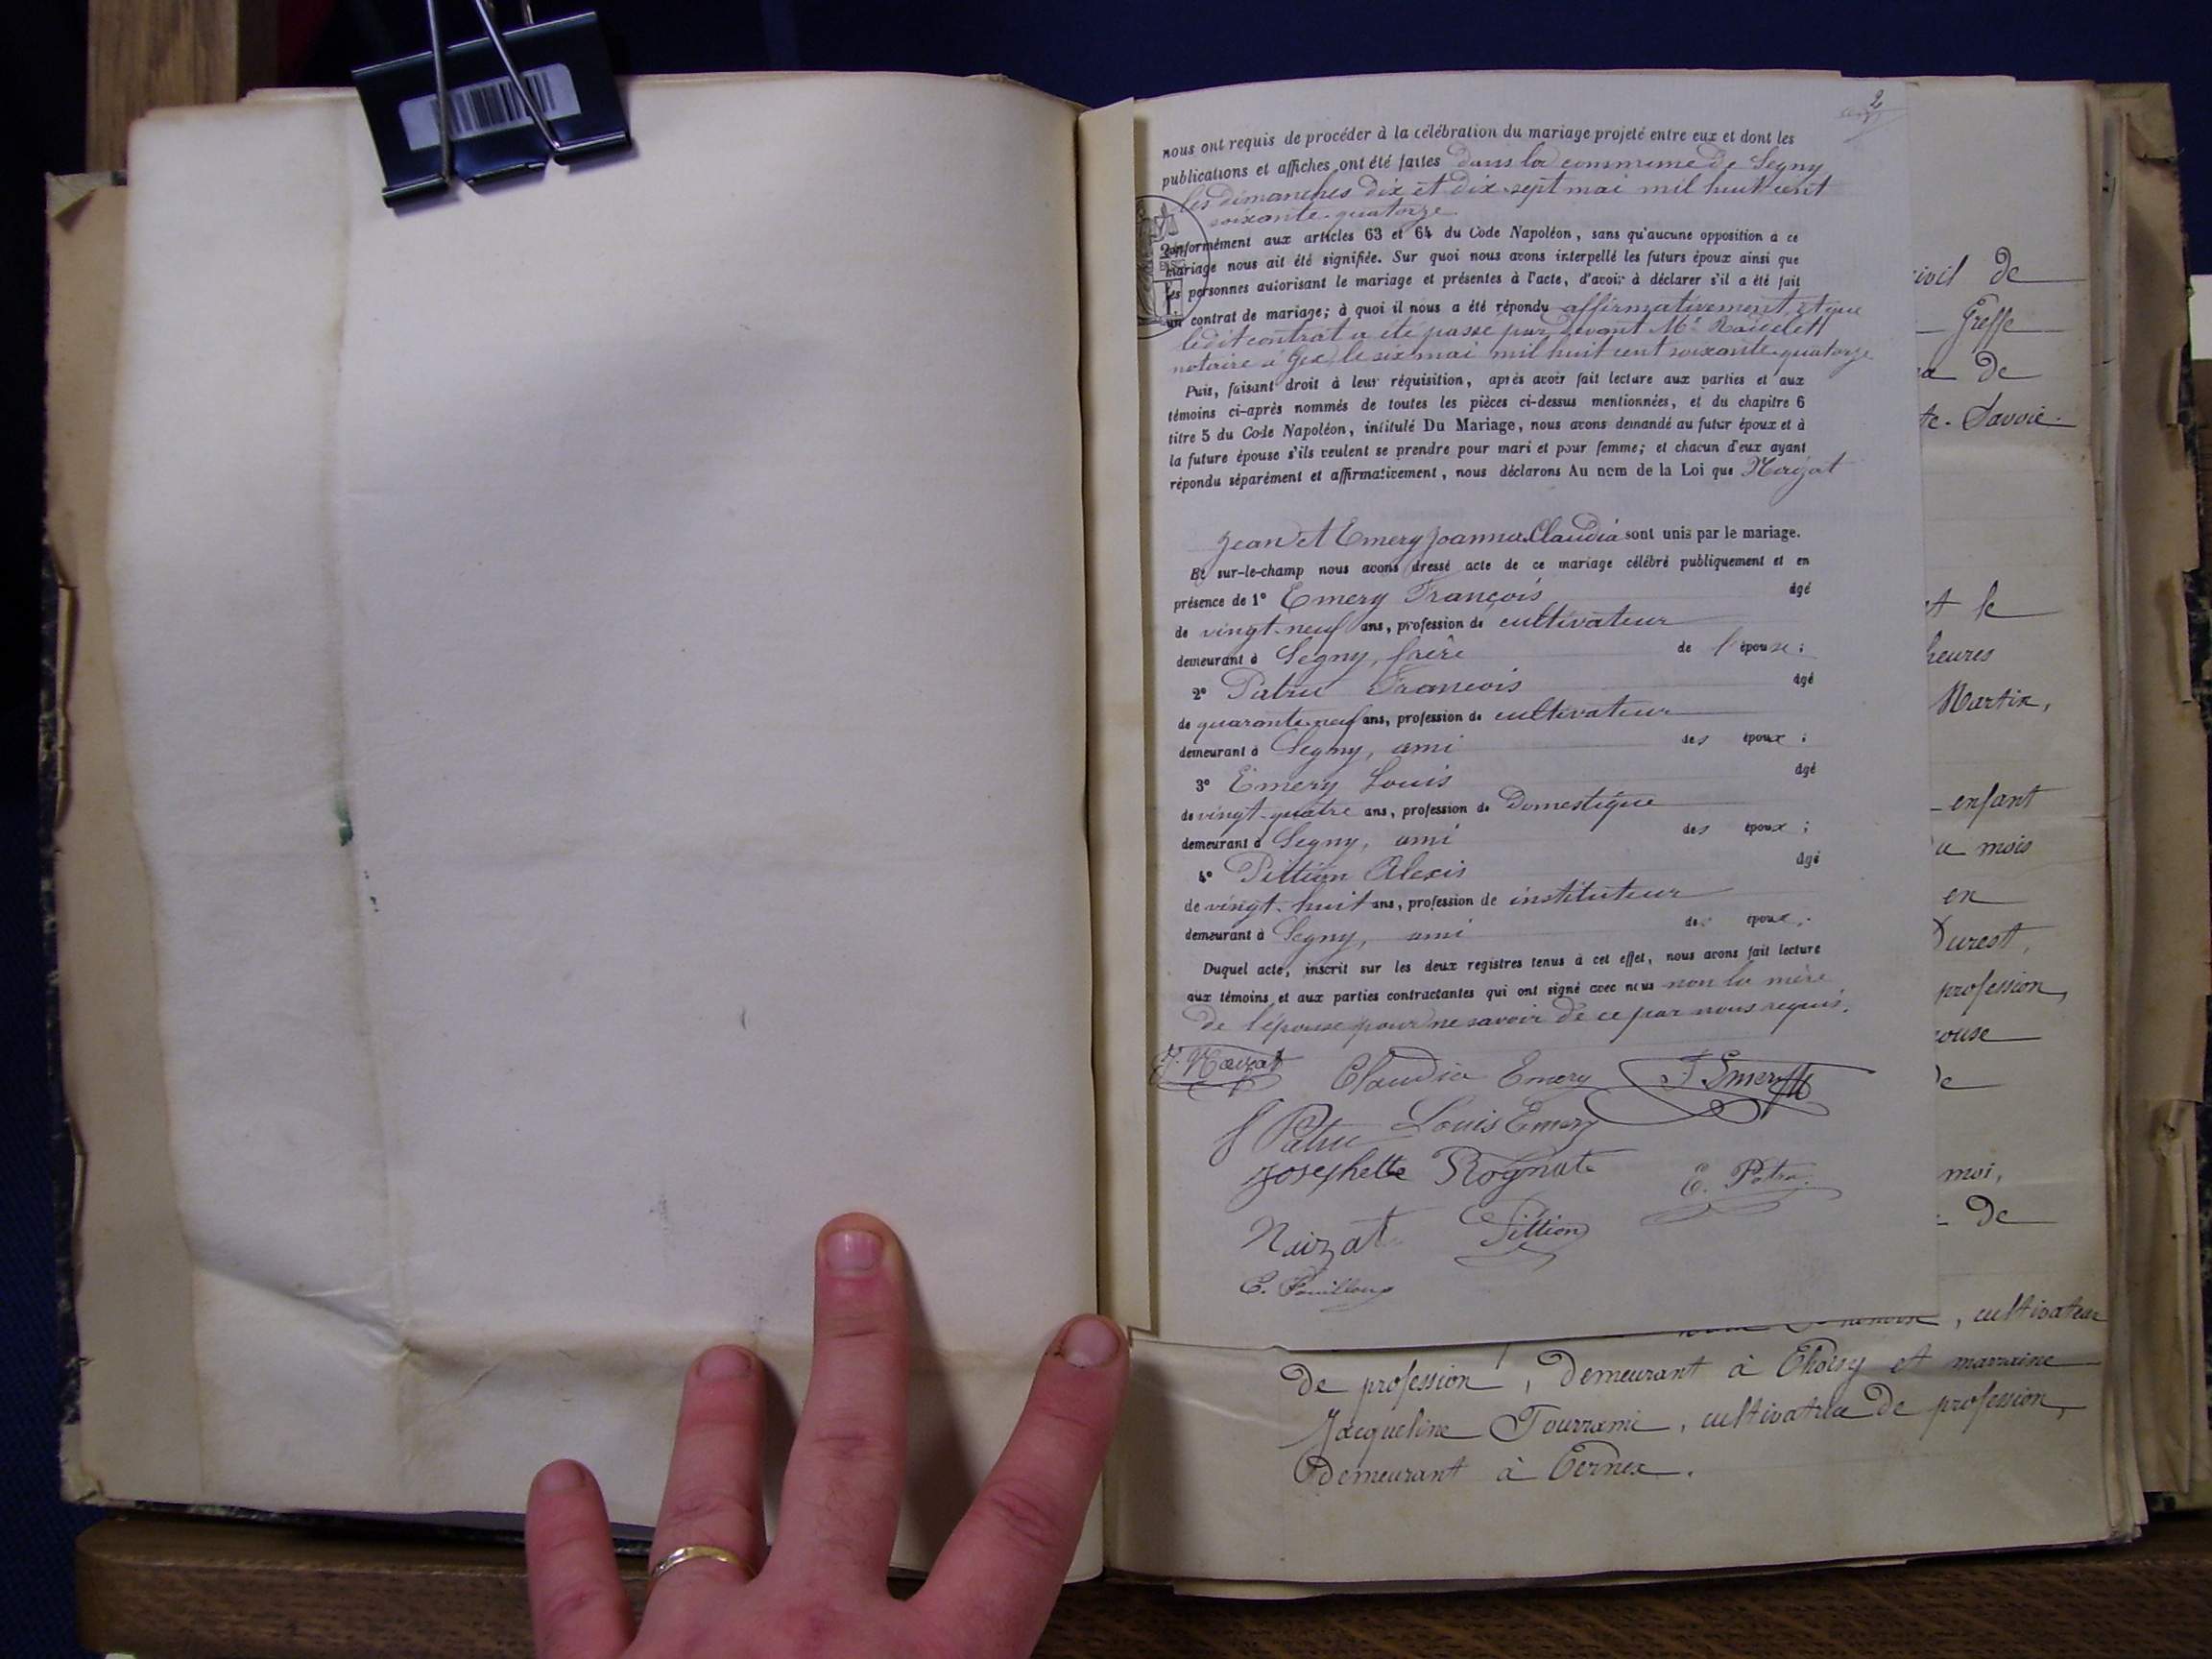 2
nous ont requis de procéder à la célébration du mariage projeté entre eux et dont les
publications et affiches ont été faites dans la commune de Segny
les dimanches dix et dix-sept mai mil huit cent
soixante-quatorze
conformément aux articles 63 et 64 du Code Napoléon, sans qu'aucune opposition à ce
mariage nous ait été signifiée. Sur quoi nous avons interpellé les futurs époux ainsi que
les personnes autorisant le mariage et présentes à l'acte, d'avoir à déclarer s'il a été fait
un contrat de mariage; à quoi il nous a été répondu affirmativement, et que
ledit contrat a été passé par devant Me
notaire à Gex, le six mai mil huit cent soixante-quatorze
Puis, faisant droit à leur réquisition, après avoir fait lecture aux parties et aux
témoins ci-après nommés de toutes les pièces ci-dessus mentionnées, et du chapitre 6
titre 5 du Code Napoléon, intitulé Du Mariage, nous avons demandé au futur époux et à
la future épouse s'ils veulent se prendre pour mari et pour femme; et chacun d'eux ayant
répondu séparément et affirmativement, nous déclarons Au nom de la Loi que
Jean et Emery Joanna Claudia sont unis par le mariage.
Et sur-le-champ nous avons dressé acte de ce mariage célébré publiquement et en
présence de 1° Emery François âgé
de vingt-neuf ans, profession de cultivateur
demeurant à Segny, frère de l'épouse;
2° Patru François âgé
de quarante-neuf ans, profession de cultivateur
demeurant à Segny, ami des époux;
3° Emery Louis âgé
de vingt-quatre ans, profession de Domestique
demeurant à Segny, ami des époux;
4° Pittion Alexis âgé
de vingt-huit ans, profession de instituteur
demeurant à Segny, ami des époux;
Duquel acte, inscrit sur les deux registres tenus à cet effet, nous avons fait lecture
aux témoins et aux parties contractantes qui ont signé avec nous non la mère
de l'épouse pour ne savoir de ce par nous requis.
Claudia Emery F Emery
f Patru Louis Emery
Josephette Rognat E. Patru
Naizat Pittion
civil de
Greffe
de
te-Savoie.
et le
heures
Martin,
enfant
mois
en
profession,
moi,
de
, cultivateur
de profession, demeurant à Choisy et marraine
Jacqueline , cultivatrice de profession,
demeurant à